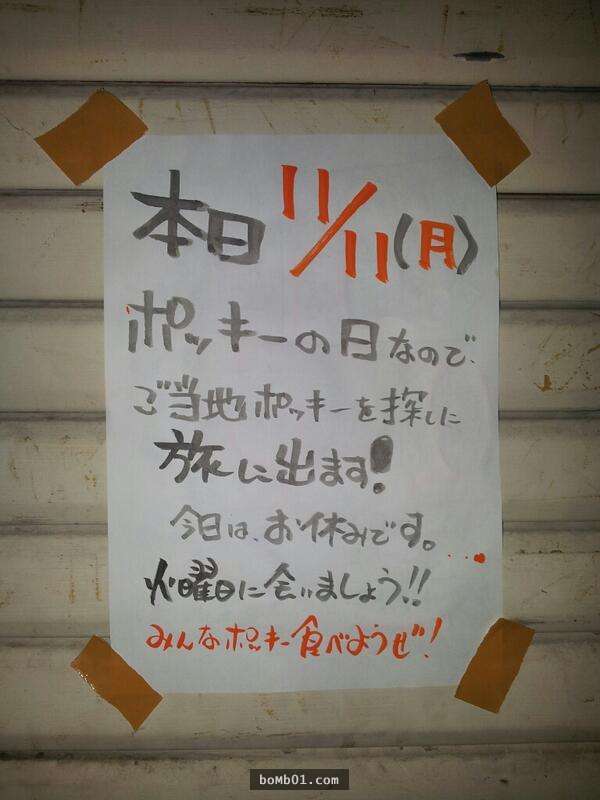 本日 11/11(月)
ポッキーの日なので、
ご当地ポッキーを探しに
旅に出ます!
今日は、お休みです。
火曜日に会いましょう!!
みんなポッキー食べようぜ!
boMb01.com